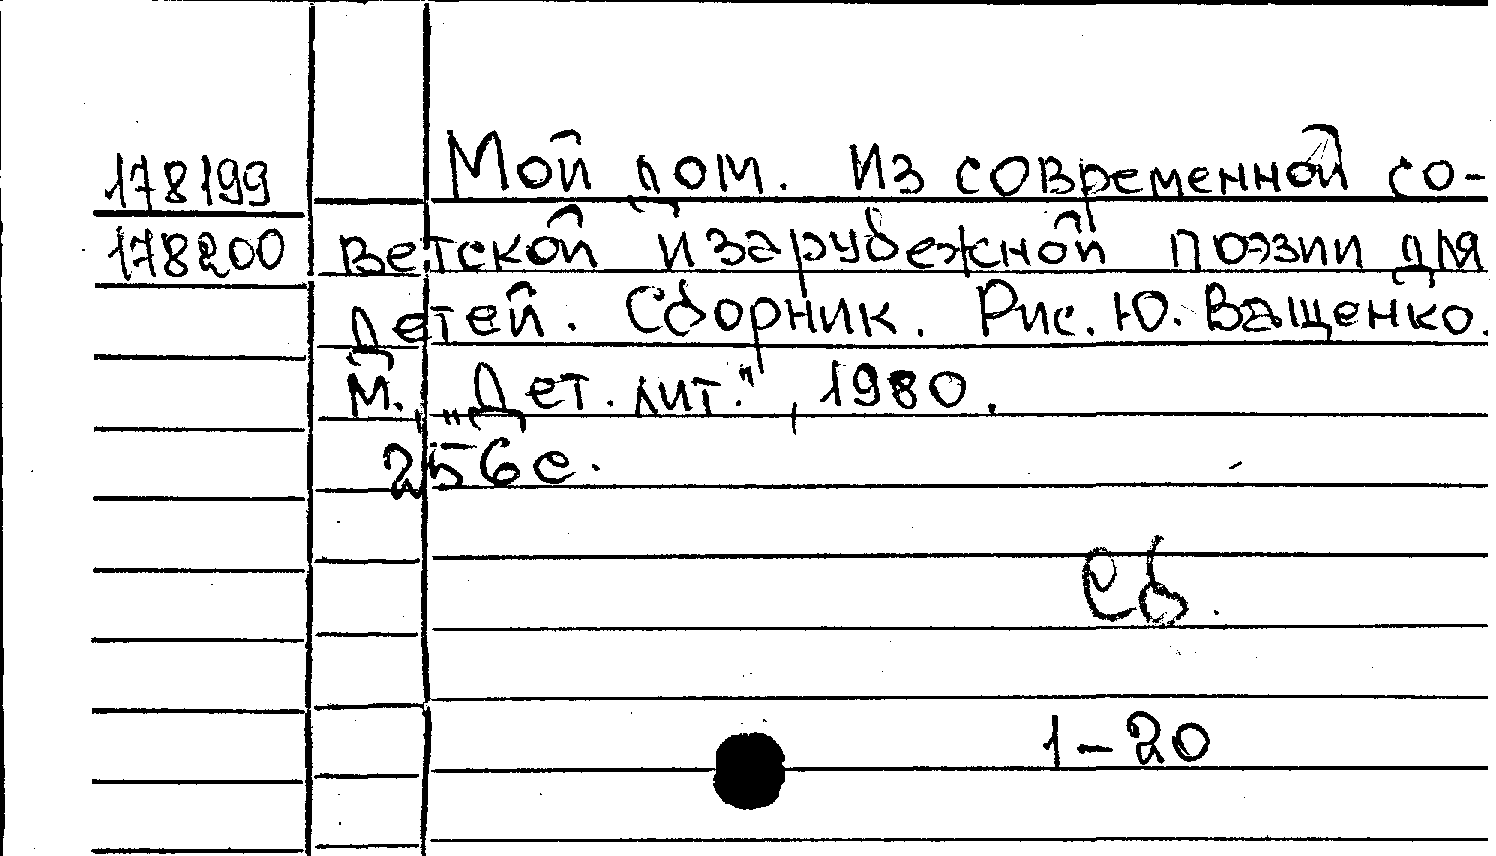 178199 Мой дом. Из современной со-
178200 ветской и зарубежной поэзии для
детей. Сборник. Рис. Ю. Ващенко.
М., „Дет. лит.", 1980.
256 с.
Сб.
1-20